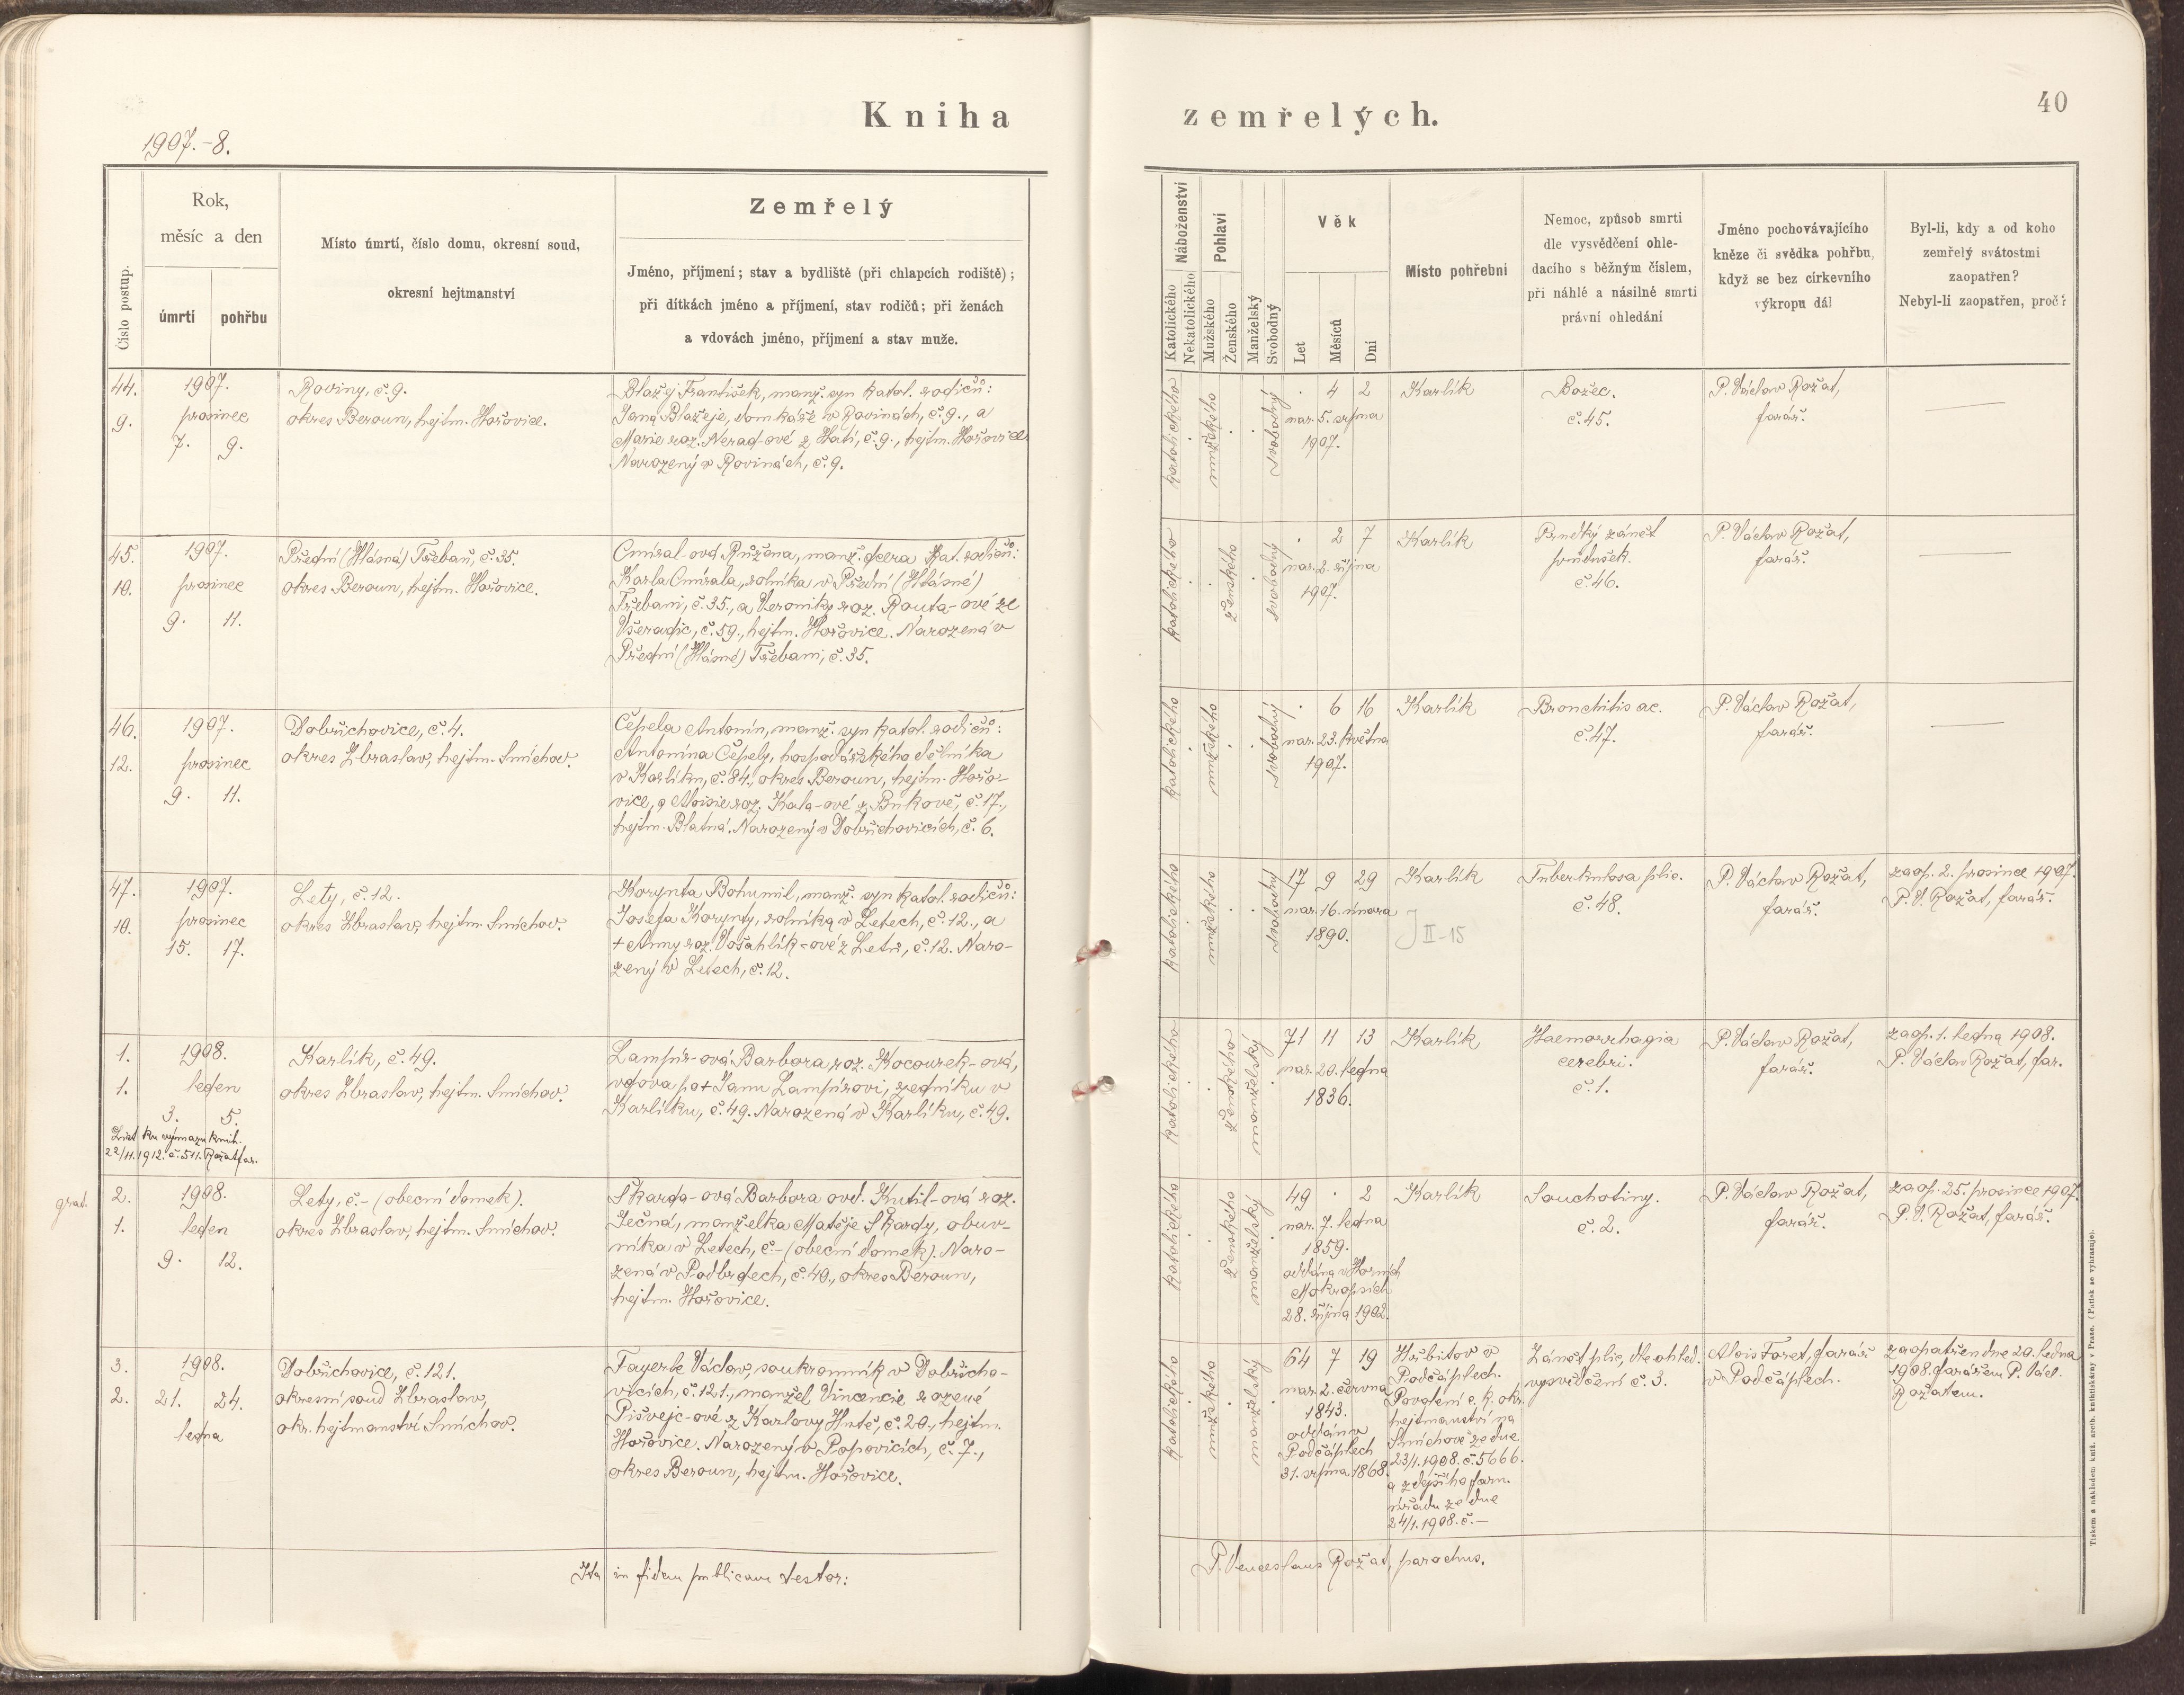 Kniha
zemřelých.
40
1907.-8.
Číslo postup.
Rok,
měsíc a den
úmrtí
pohřbu
Místo úmrtí, číslo domu, okresní soud,
okresní hejtmanství
Zemřelý
Jméno, příjmení; stav a bydliště (při chlapcích rodiště);
při dítkách jméno a příjmení, stav rodičů; při ženách
a vdovách jméno, příjmení a stav muže.
Náboženství
Katolického
Nekatolického
Pohlaví
Mužského
Ženského
Manželský
Svobodný
Věk
Let
Měsíců
Dní
Místo pohřební
Nemoc, způsob smrti
dle vysvědčení ohle-
dacího s běžným číslem,
při náhlé a násilné smrti
právní ohledání
Jméno pochovávajícího
kněze či svědka pohřbu,
když se bez církevního
výkropu dál
Byl-li, kdy a od koho
zemřelý svátostmi
zaopatřen?
Nebyl-li zaopatřen, proč?
44.
9.
1907.
prosinec
7. 9.
Roviny, č. 9.
okres Beroun, hejtm. Hořovice.
Blažej František, manž. syn katol. rodičů:
Jana Blažeje, domkáře v Rovinách, č. 9., a
Marie roz. Nerad-ové z Hatí, č. 9., hejtm. Hořovice
Narozený v Rovinách, č. 9.
katolického
mužského
svobodný
. 4 2
nar. 5. srpna
1907.
Karlík
Božec.
č. 45.
P. Václav Rožat,
farář.
45.
10.
1907.
prosinec
9. 11.
Přední (Hlásná) Třebaň, č. 35.
okres Beroun, hejtm. Hořovice.
Cmíral-ová Růžena, manž. dcera kat. rodičů:
Karla Cmírala, rolníka v Přední (Hlásné)
Třebani, č. 35., a Veroniky roz. Routa-ové ze
Všeradic, č. 59., hejtm. Hořovice. Narozená v
Přední (Hlásné) Třebani, č. 35.
katolického
ženského
svobodný
. 2 7
nar. 2. října
1907.
Karlík
Prudký zánět
průdušek.
č. 46.
P. Václav Rožat,
farář.
46.
12.
1907.
prosinec
9. 11.
Dobřichovice, č. 4.
okres Zbraslav, hejtm. Smíchov.
Čepela Antonín, manž. syn katol. rodičů:
Antonína Čepely, hospodářského dělníka
v Karlíku, č. 84., okres Beroun, hejtm. Hořo-
vice, a Aloisie roz. Kala-ové z Bukové, č. 17.,
hejtm. Blatná. Narozený v Dobřichovicích, č. 6.
katolického
mužského
svobodný
. 6 16
nar. 23. května
1907.
Karlík
Bronchitis ac.
č. 47.
P. Václav Rožat,
farář.
47.
10.
1907.
prosinec
15. 17.
Lety, č. 12.
okres Zbraslav, hejtm. Smíchov.
Korynta Bohumil, manž. syn katol. rodičů:
Josefa Korynty, rolníka v Letech, č. 12., a
+ Anny roz. Vošahlík-ové z Letů, č. 12. Naro-
zený v Letech, č. 12.
katolického
mužského
svobodný
17 9 29
nar. 16. února
1890.
Karlík
J II-15
Tuberkulosa plic.
č. 48.
P. Václav Rožat,
farář.
zaop. 2. prosince 1907.
P. V. Rožat, farář.
1.
1.
1908.
leden
3. 5.
List ku výmazu knih.
22/11. 1912. č. 511. Rožat far.
Karlík, č. 49.
okres Zbraslav, hejtm. Smíchov.
Lampír-ová Barbora roz. Kocourek-ová,
vdova po + Janu Lampírovi, zedníku v
Karlíku, č. 49. Narozená v Karlíku, č. 49.
katolického
ženského
manželský
71 11 13
nar. 20. ledna
1836.
Karlík
Haemorrhagia
cerebri.
č. 1.
P. Václav Rožat,
farář.
zaop. 1. ledna 1908.
P. Václav Rožat, far.
grat.
2.
1.
1908.
leden
9. 12.
Lety, č.- (obecní domek).
okres Zbraslav, hejtm. Smíchov.
Škarda-ová Barbora ovd. Kutil-ová roz.
Ječná, manželka Matěje Škardy, obuv-
níka v Letech, č.- (obecní domek). Naro-
zená v Podbrdech, č. 40., okres Beroun,
hejtm. Hořovice.
katolického
ženského
manželský
49 . 2
nar. 7. ledna
1859.
oddána v Horních
Mokropsích
28. října 1902.
Karlík
Souchotiny.
č. 2.
P. Václav Rožat,
farář.
zaop. 25. prosince 1907.
P. V. Rožat, farář.
3.
2.
1908.
21. 24.
ledna
Dobřichovice, č. 121.
okresní soud Zbraslav,
okr. hejtmanství Smíchov.
Fayerle Václav, soukromník v Dobřicho-
vicích, č. 121., manžel Vincencie rozené
Pišvejc-ové z Karlovy Hutě, č. 20., hejtm.
Hořovice. Narozený v Popovicích, č. 7.,
okres Beroun, hejtm. Hořovice.
katolického
mužského
manželský
64 7 19
nar. 2. června
1843.
oddán v
Podčáplech
31. srpna 1868.
Hřbitov v
Podčáplech.
Povolení c. k. okr.
hejtmanství na
Smíchově ze dne
23/1. 1908. č. 5666.
a zdejšího farn.
úřadu ze dne
24/1. 1908. č.-
Zánět plic, dle ohled.
vysvědčení č. 3.
Alois Foret, farář
v Podčáplech.
zaopatřen dne 20. ledna
1908. farářem P. Václ.
Rožatem.
Ita in fidem publicam testor:
P. Venceslaus Rožat, parochus.
Tiskem a nákladem kníž. arcib. knihtiskárny v Praze. (Patisk se vyhrazuje).